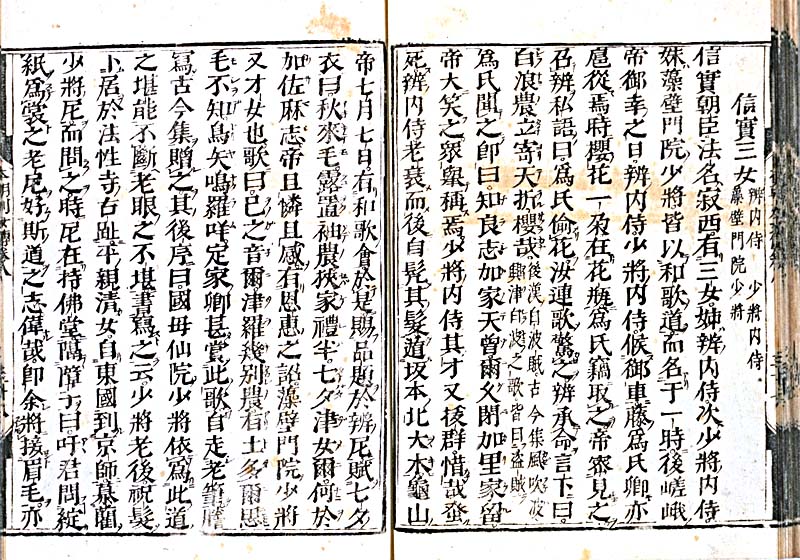 信實三女 辨内侍 少將内侍
藻壁門院少將
信實朝臣法名寂西有三女姉辨内侍次少將内侍
妹藻壁門院少將皆以和歌道而名于一時後嵯峨
帝御幸之日辨内侍少將内侍候御車藤爲氏卿亦
扈從焉時櫻花一朶在花瓶爲氏竊取之帝密見之
召辨私語曰爲氏偷花汝連歌驚之辨承命言下曰
白浪農立寄天折櫻哉 後漢白波賊古今集風吹波
興津之歌皆曰盗賊
爲氏聞之卽曰知良志加家天曾爾加里家留
帝大笑之衆皆稱焉少將内侍其才又抜群惜哉蚤
死辨内侍老衰而後自髡其髮遁坂本北大木龜山
帝七月七日有和歌會於是賜品題於辨尼賦七夕
衣曰秋來毛露置袖農挾家禮半七夕津女爾何於
加佐麻志帝且憐且感有恩惠之詔藻壁門院少將
又才女也歌曰己之音爾津羅幾別農有土多爾思
毛不知鳥矢鳴羅咩定家卿甚賞此歌自走老筆謄
寫古今集贈之其後序曰國母仙院少將依爲此道
之堪能不斷老眼之不堪書寫之云少將老後祝髮
卜居於法性寺古趾平親清女自東國到京師慕藺
少將尼而問之時尼在持佛堂隔障子曰吁君問綻
紙爲裳之老尼好斯道之志偉哉卽余將接眉毛亦